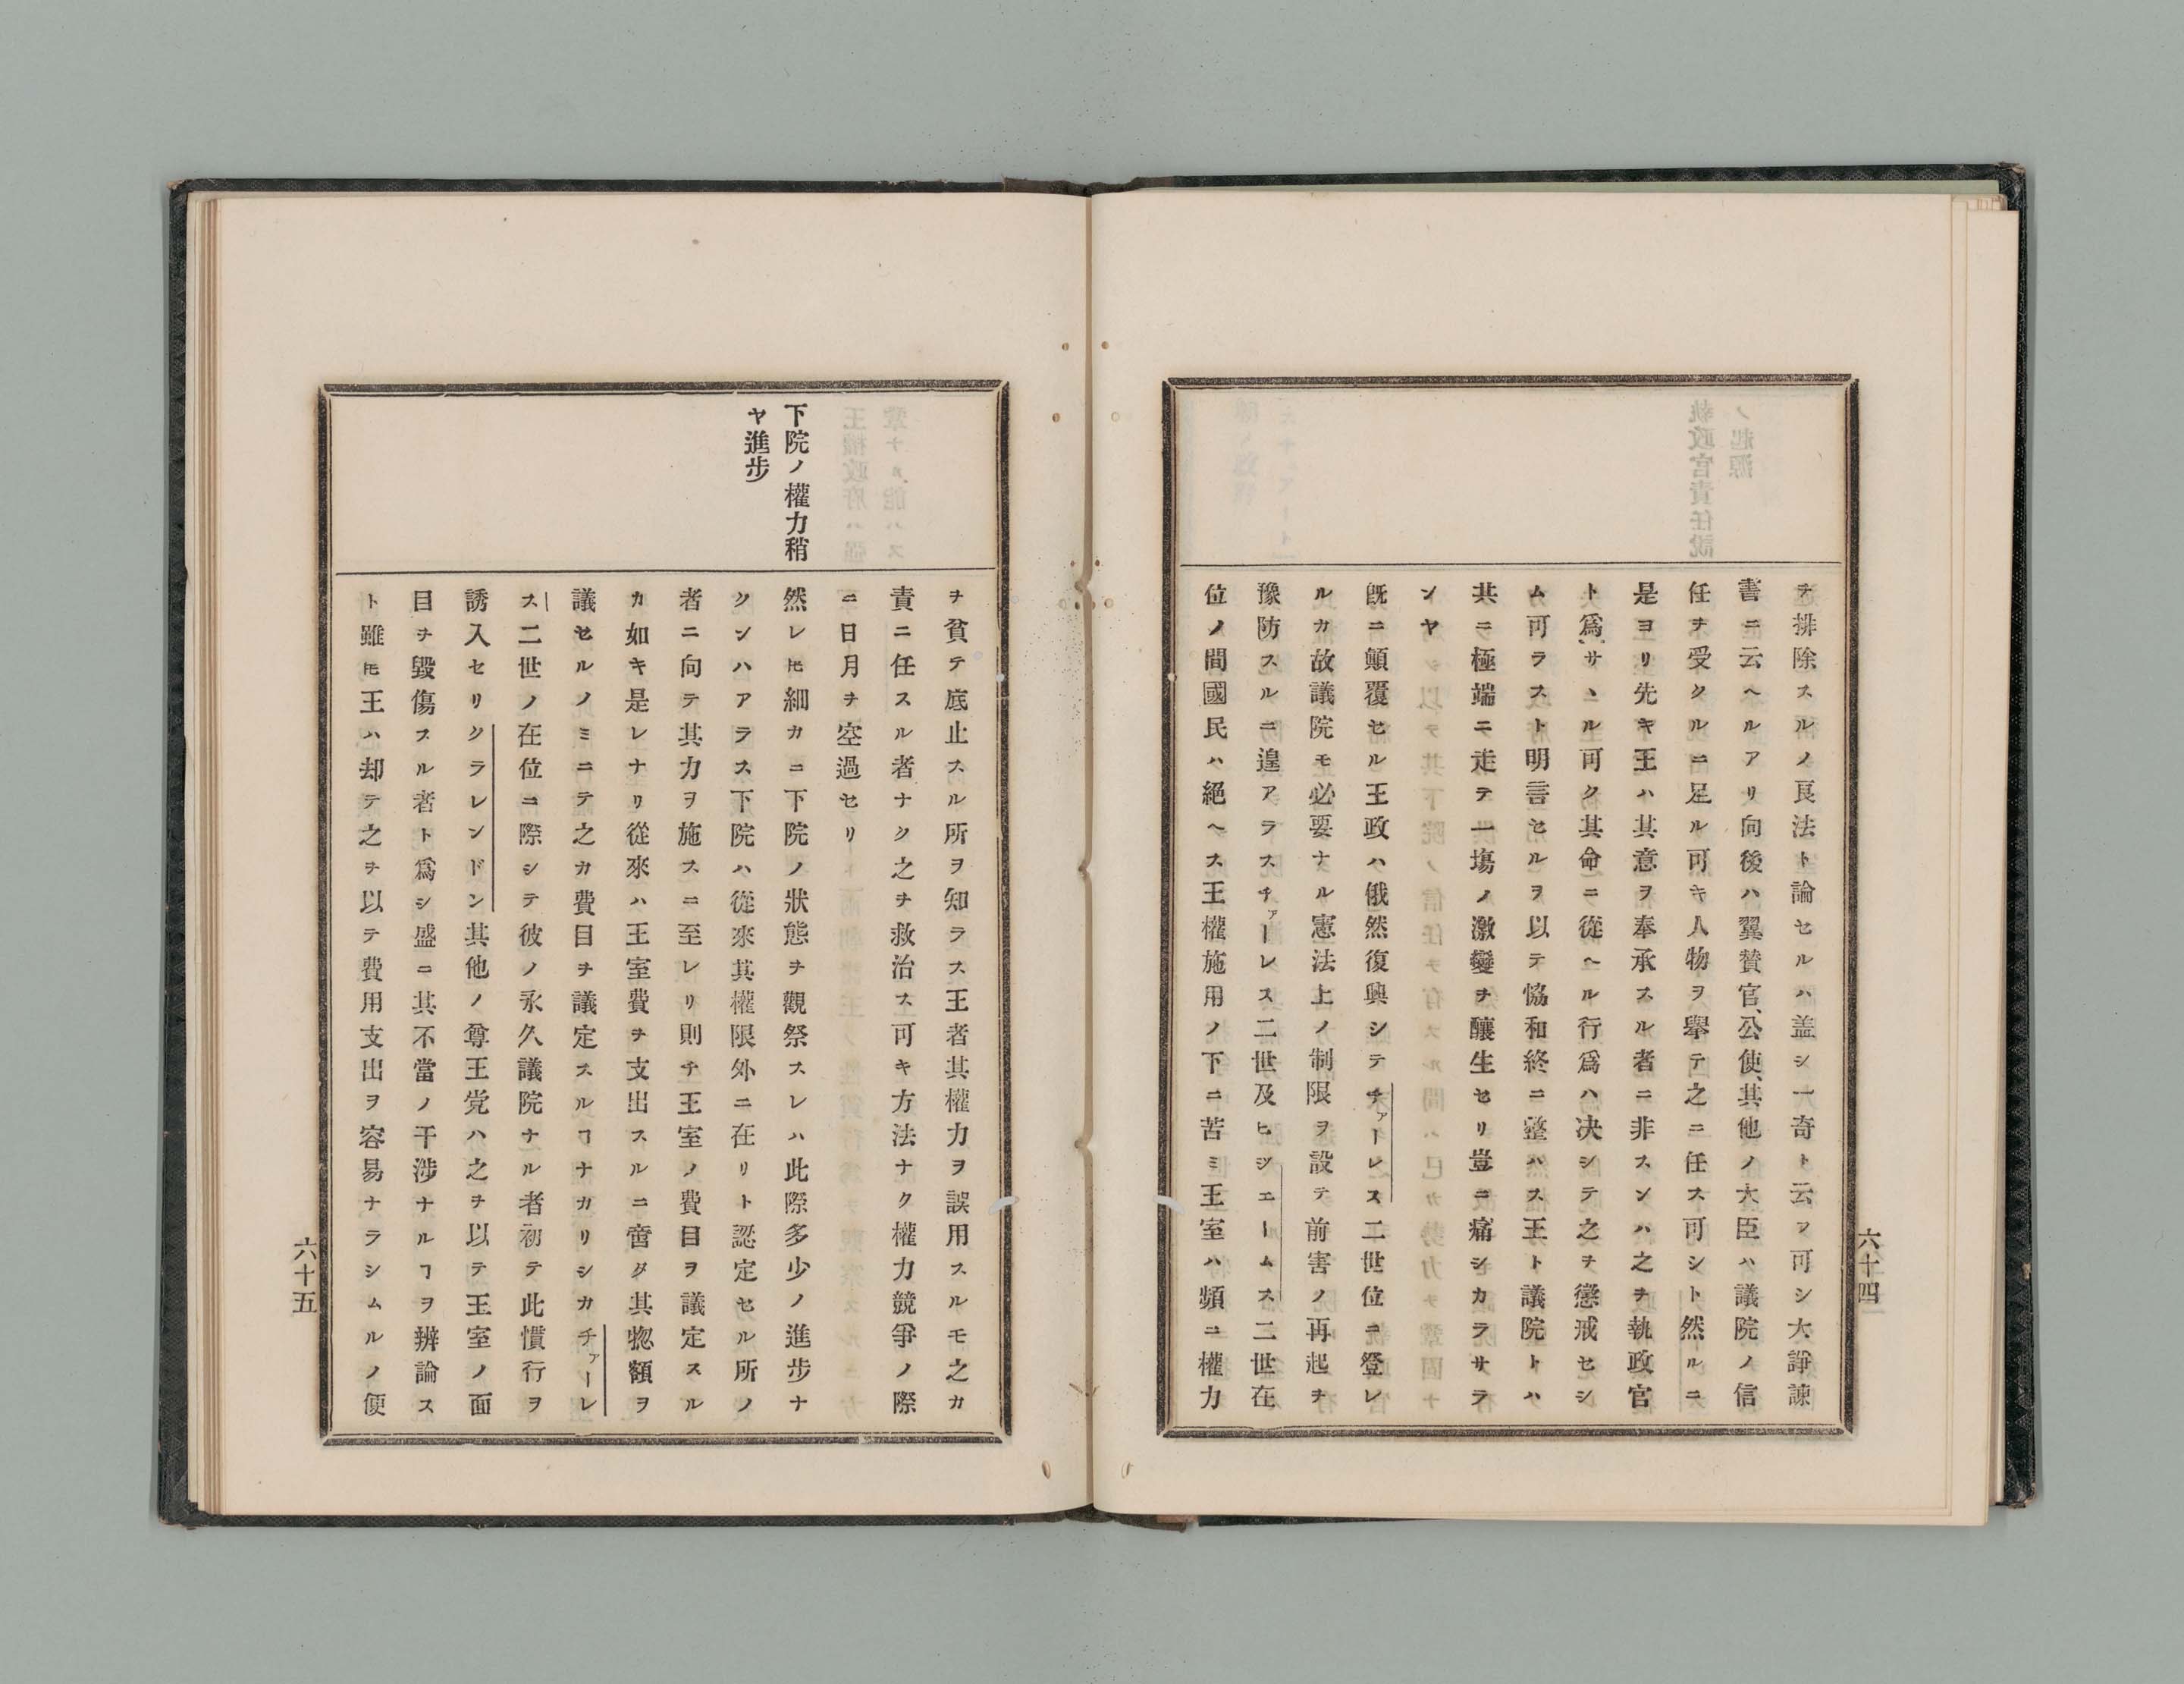 ヲ排除スルノ良法ト論セルハ盖シ一奇ト云フ可シ大諍諌
書ニ云ヘルアリ向後ハ翼賛官、公使、其他ノ大臣ハ議院ノ信
任ヲ受クルニ足ル可キ人物ヲ擧テ之ニ任ス可シト然ルニ
是ヨリ先キ王ハ其意ヲ奉承スル者ニ非スンハ之ヲ執政官
ト爲サヽル可ク其命ニ從ヘル行爲ハ决シテ之ヲ懲戒セシ
ム可ラスト明言セルヲ以テ恊和終ニ整ハス王ト議院トハ
共ニ極端ニ走テ一塲ノ激變ヲ釀生セリ豈ニ痛シカラサラ
ンヤ
既ニ顛覆セル王政ハ俄然復興シテチァーレス二世位ニ登レ
ルカ故議院モ必要ナル憲法上ノ制限ヲ設テ前害ノ再起ヲ
豫防スルニ遑アラスチァーレス二世及ヒジエームス二世在
位ノ間國民ハ絕ヘス王權施用ノ下ニ苦ミ王室ハ頻ニ權力
六十四
下院ノ權力稍
ヤ進步
ヲ貧テ底止スル所ヲ知ラス王者其權力ヲ誤用スルモ之カ
責ニ任スル者ナク之ヲ救治ス可キ方法ナク權力競爭ノ際
ニ日月ヲ空過セリ
然レ𪜈細カニ下院ノ狀態ヲ觀祭スレハ此際多少ノ進步ナ
クンハアラス下院ハ從來其權限外ニ在リト認定セル所ノ
者ニ向テ其力ヲ施スニ至レリ則チ王室ノ費目ヲ議定スル
カ如キ是レナリ從來ハ王室費ヲ支出スルニ啻タ其惣額ヲ
議セルノミニテ之カ費目ヲ議定スルヿナカリシカチァーレ
ス二世ノ在位ニ際シテ彼ノ永久議院ナル者初テ此慣行ヲ
誘入セリクラレンドン其他ノ尊王党ハ之ヲ以テ王室ノ面
目ヲ毀傷スル者ト爲シ盛ニ其不當ノ干渉ナルヿヲ辨論ス
ト雖𪜈王ハ却テ之ヲ以テ費用支出ヲ容易ナラシムルノ便
六十五